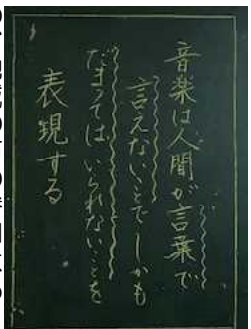 音楽は人間が言葉で
言えないことでしかも
だまってはいられないことを
表現する